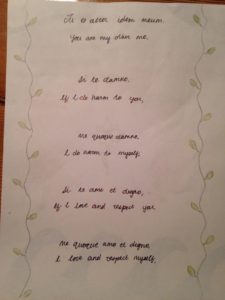 Tu es alter idem meum.
You are my other me.
Si te damno,
If I do harm to you,
Me quoque damno.
I do harm to myself,
Si te amo et digno,
If I love and respect you
Me quoque amo et digno
I love and respect myself,